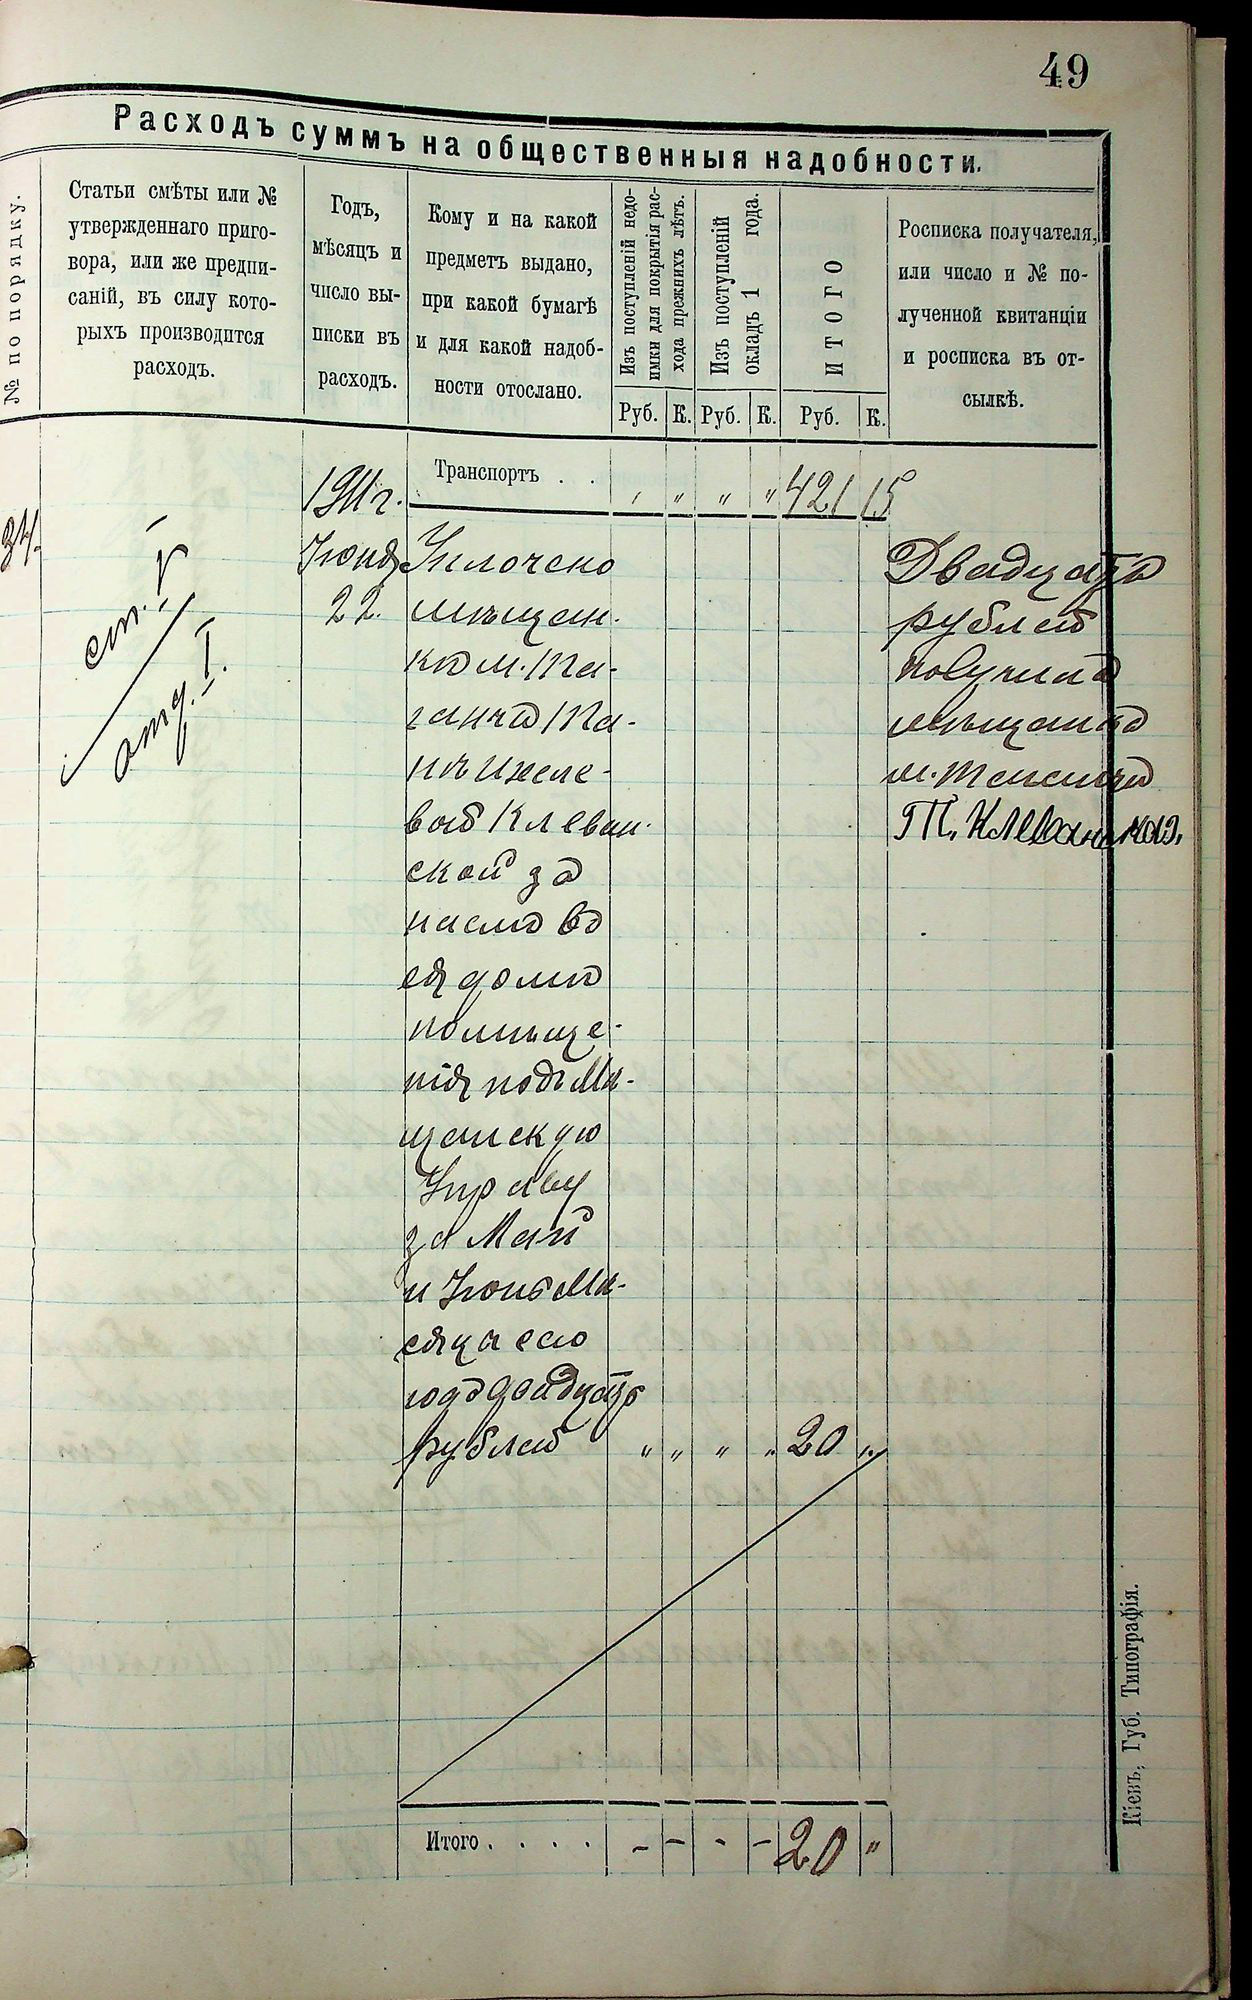 49
Расходъ суммъ на общественныя надобности.
№ по порядку.
Статьи смѣты или №
утвержденнаго приго-
вора, или же предпи-
саній, въ силу кото-
рыхъ производится
расходъ.
Годъ,
мѣсяцъ и
число вы-
писки въ
расходъ.
Кому и на какой
предметъ выдано,
при какой бумагѣ
и для какой надоб-
ности отослано.
Изъ поступленій недо-
имки для покрытія рас-
хода прежнихъ лѣтъ.
Изъ поступленій
окладъ 1 года.
ИТОГО
Росписка получателя,
или число и № по-
лученной квитанціи
и росписка въ от-
сылкѣ.
Руб. К. Руб. К. Руб. К.
1911 г. Транспортъ . . „ „ „ „ 421 15
34.
ст. V
отд. I.
Іюня
22.
Уплочено
мѣщан-
кѣ м. Та-
ганча Та-
нѣ
вой Клеван-
ской за
наемъ въ
ея домѣ
помѣще-
нія подъ Мѣ-
щанскую
Управу
за Май
и Іюнь мѣ-
сяца сего
года двадцать
рублей „ „ „ „ 20 „
Двадцать
рублей
получила
мѣщанка
м. Таганча
Т. Клеванская.
Итого . . . . - - - - 20 „
Кіевъ, Губ. Типографія.